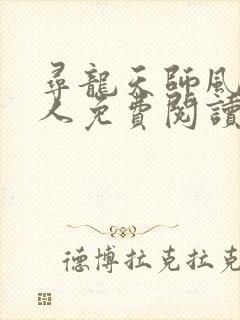 尋龍天師風
人免費閱讀
德博拉克拉克